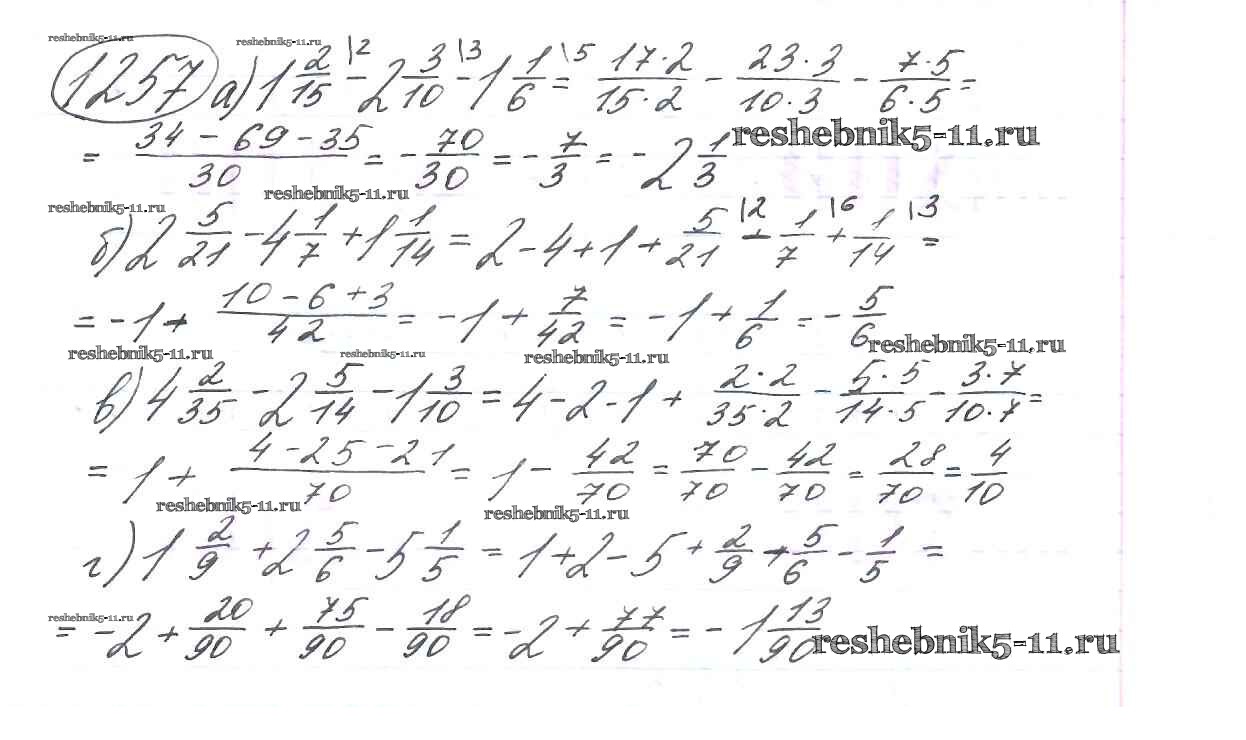 reshebnik5-11.ru reshebnik5-11.ru
1257 а) 1 2/15 \2 - 2 3/10 \3 - 1 1/6 \5 = 17·2/15·2 - 23·3/10·3 - 7·5/6·5 =
= 34 - 69 - 35/30 = - 70/30 = - 7/3 = - 2 1/3 reshebnik5-11.ru
reshebnik5-11.ru reshebnik5-11.ru
б) 2 5/21 - 4 1/7 + 1 1/14 = 2 - 4 + 1 + 5/21 \2 - 1/7 \6 + 1/14 \3 =
= - 1 + 10 - 6 + 3/42 = - 1 + 7/42 = - 1 + 1/6 = - 5/6 reshebnik5-11.ru
reshebnik5-11.ru reshebnik5-11.ru reshebnik5-11.ru
в) 4 2/35 - 2 5/14 - 1 3/10 = 4 - 2 - 1 + 2·2/35·2 - 5·5/14·5 - 3·7/10·7 =
= 1 + 4 - 25 - 21/70 = 1 - 42/70 = 70/70 - 42/70 = 28/70 = 4/10
reshebnik5-11.ru reshebnik5-11.ru
г) 1 2/9 + 2 5/6 - 5 1/5 = 1 + 2 - 5 + 2/9 + 5/6 - 1/5 =
reshebnik5-11.ru
= - 2 + 20/90 + 75/90 - 18/90 = - 2 + 77/90 = - 1 13/90 reshebnik5-11.ru